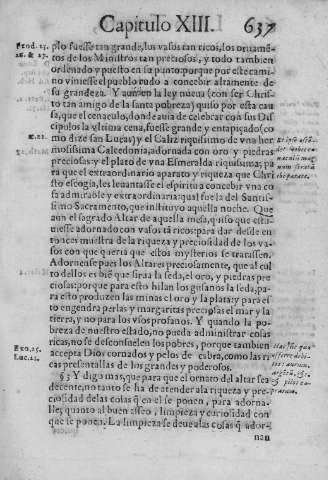 Capitulo XIII. 637
Exod. 25.
26. & 27.
plo fuesse tan grande, los vasos tan ricos, los ornamē-
tos de los Ministros tan preciosos, y todo tambien
ordenado y puesto en su punto: porque por este cami-
no viniesse el pueblo rudo a concebir altamente de
su grandeza. Y aun en la ley nueua (con ser Chris-
to tan amigo de la santa pobreza) quiso por esta cau
sa, que el cenaculo, donde auia de celebrar con sus Dis
cipulos la vltima cena, fuesse grande y entapiçado (co
L.22.
mo dize san Lucas) y el Caliz riquissimo de vna her
mosissima Calcedonia, adornada con oro y piedras
preciosas: y el plato de vna Esmeralda riquissima; pa
ra que el extraordinario aparato y riqueza que Chri
sto escogia, les leuantasse el espiritu a concebir vna co
sa admirable y extraordinaria: qual fue la del Santis-
simo Sacramento, que instituyo aquella noche. Que
aun el sagrado Altar de aquella mesa, quiso que estu-
uiesse adornado con vasos tā ricos: para dar desde en
tonces muestra de la riqueza y preciosidad de los va-
sos con que queria que estos mysterios se tratassen.
Adornense pues los Altares preciosamente, que al cul
to dellos es biē que sirua la seda, el oro, y piedras pre
ciosas: porque para esto hilan los gusanos la seda, pa-
ra esto produzen las minas el oro y la plata: y para es
to engendra perlas y margaritas preciosas el mar y la
tierra, y no para los vsos profanos. Y quando la po-
breza de nuestro estado, no pueda administrar cosas
ricas, no se desconsuelen los pobres, porque tambien
Exo. 25.
Luc. 21.
accepta Dios cornados y pelos de cabra, como las ri
cas presentallas de los grandes y poderosos.
§ 3 Y digo mas, que para que el ornato del altar sea
decente, no tanto se ha de atender a la riqueza y pre-
ciosidad de las colas q̄ en el se ponen, para adorna-
lle; quanto al buen asseo, limpieza y curiosidad con
que se ponen. La limpieza se deue a las cosas q̄ ador-
nan